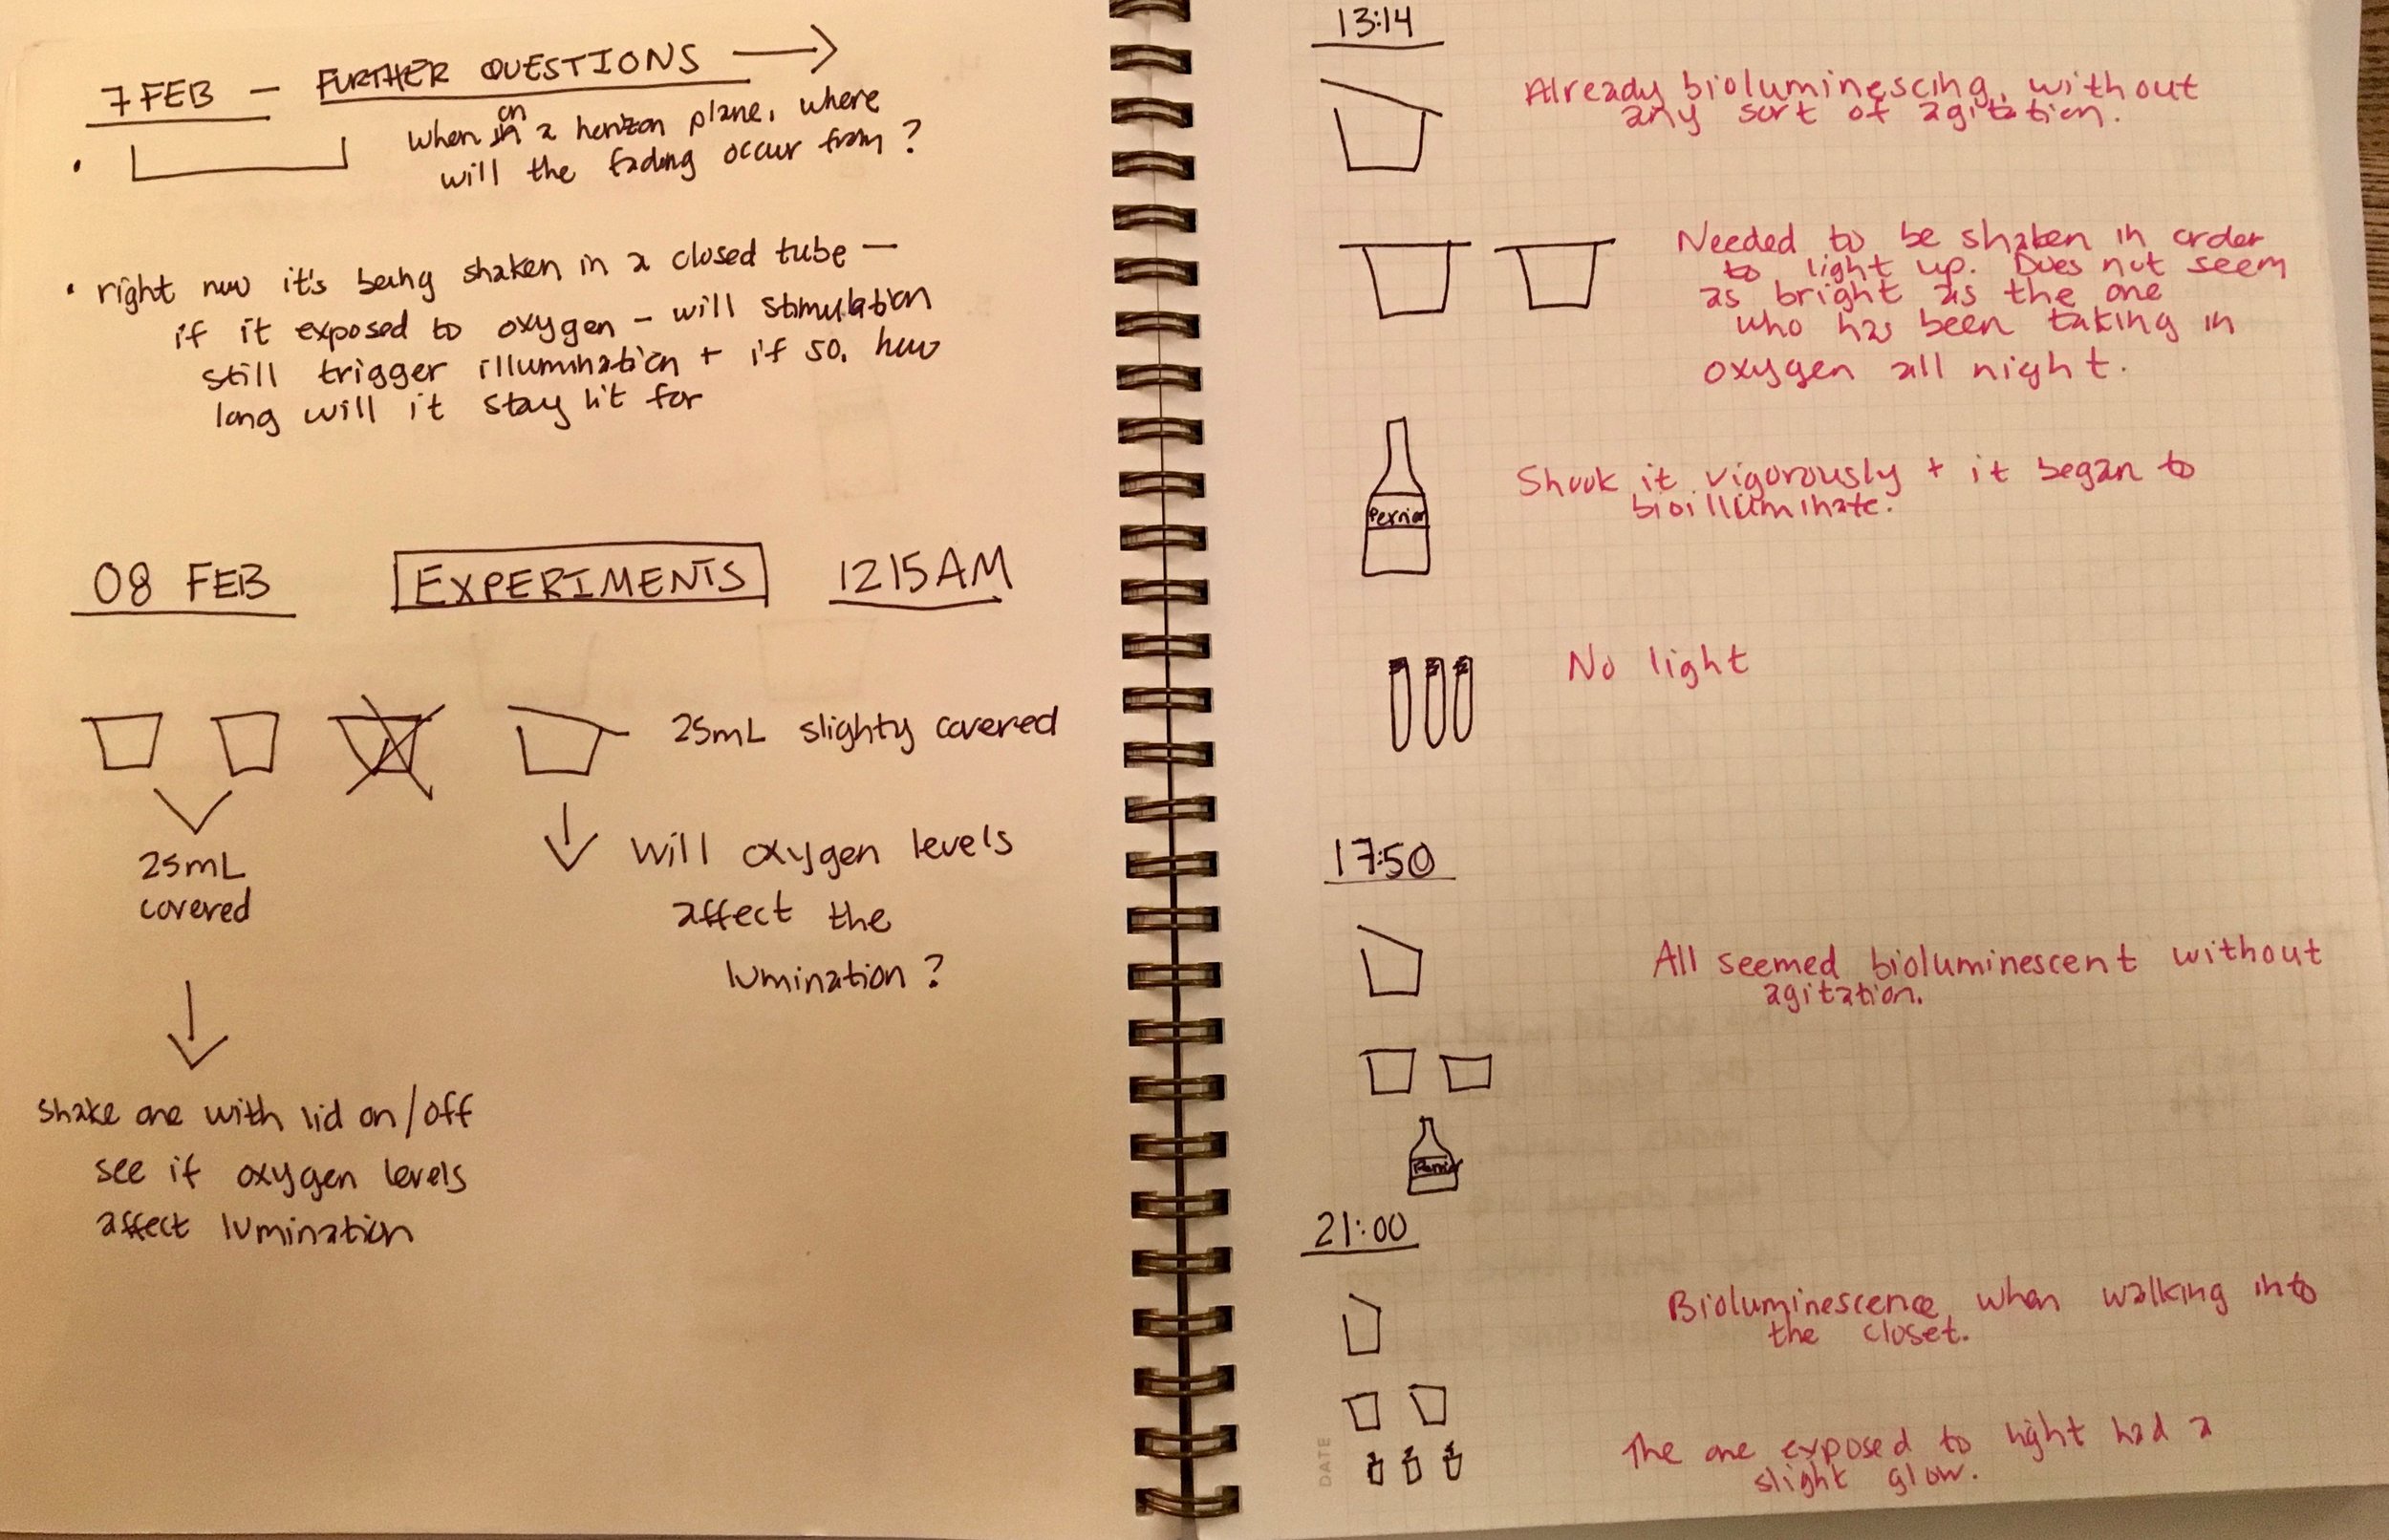 7 FEB — FURTHER QUESTIONS →
on
• When in a horizon plane, where
will the fading occur from?
• right now it's being shaken in a closed tube —
if it exposed to oxygen – will stimulation
still trigger illumination + if so, how
long will it stay lit for
08 FEB EXPERIMENTS 1215AM
25mL slighty covered
25mL
covered
Will oxygen levels
affect the
lumination?
Shake one with lid on/off
see if oxygen levels
affect lumination
13:14
Already bioluminescing, without
any sort of agitation.
Needed to be shaken in order
to light up. Does not seem
as bright as the one
who has been taking in
oxygen all night.
Shook it vigorously + it began to
bioilluminate.
Perrier
No light
17:50
All seemed bioluminescent without
agitation.
Perrier
21:00
Bioluminescence when walking into
the closet.
The one exposed to light had a
slight glow.
DATE